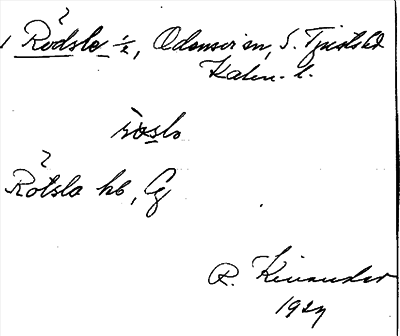 ?
1 Rödsle ½, Odensvi sn, S. Tjusts hd
Kalm. l.
roslo
?
Rötsla hb, Gf
R. Kinander
1927